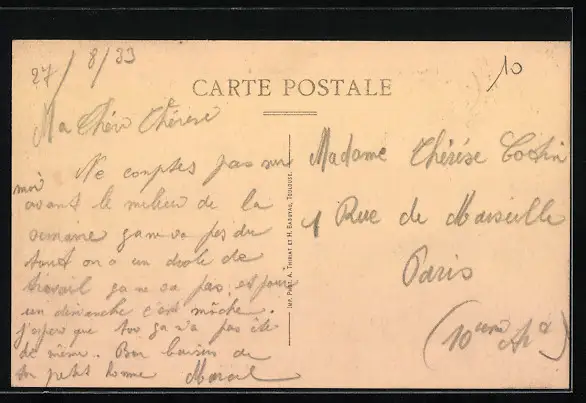 27/8/33
10
CARTE POSTALE
Ma Chère Thérèse
Ne comptes pas sur
moi
avant le milieu de la
semaine ça ne va pas du
tout on a un drole de
travail ça ne va pas, et pour
un dimanche c'est moche.
J'espère que toi ça va pas été
de même. Bon baisers de
ton petit homme Marcel
IMP. PHOT. A. THIRIAT ET H. BASUYAU, TOULOUSE.
Madame Thérèse
1 Rue de Marseille
Paris
(10